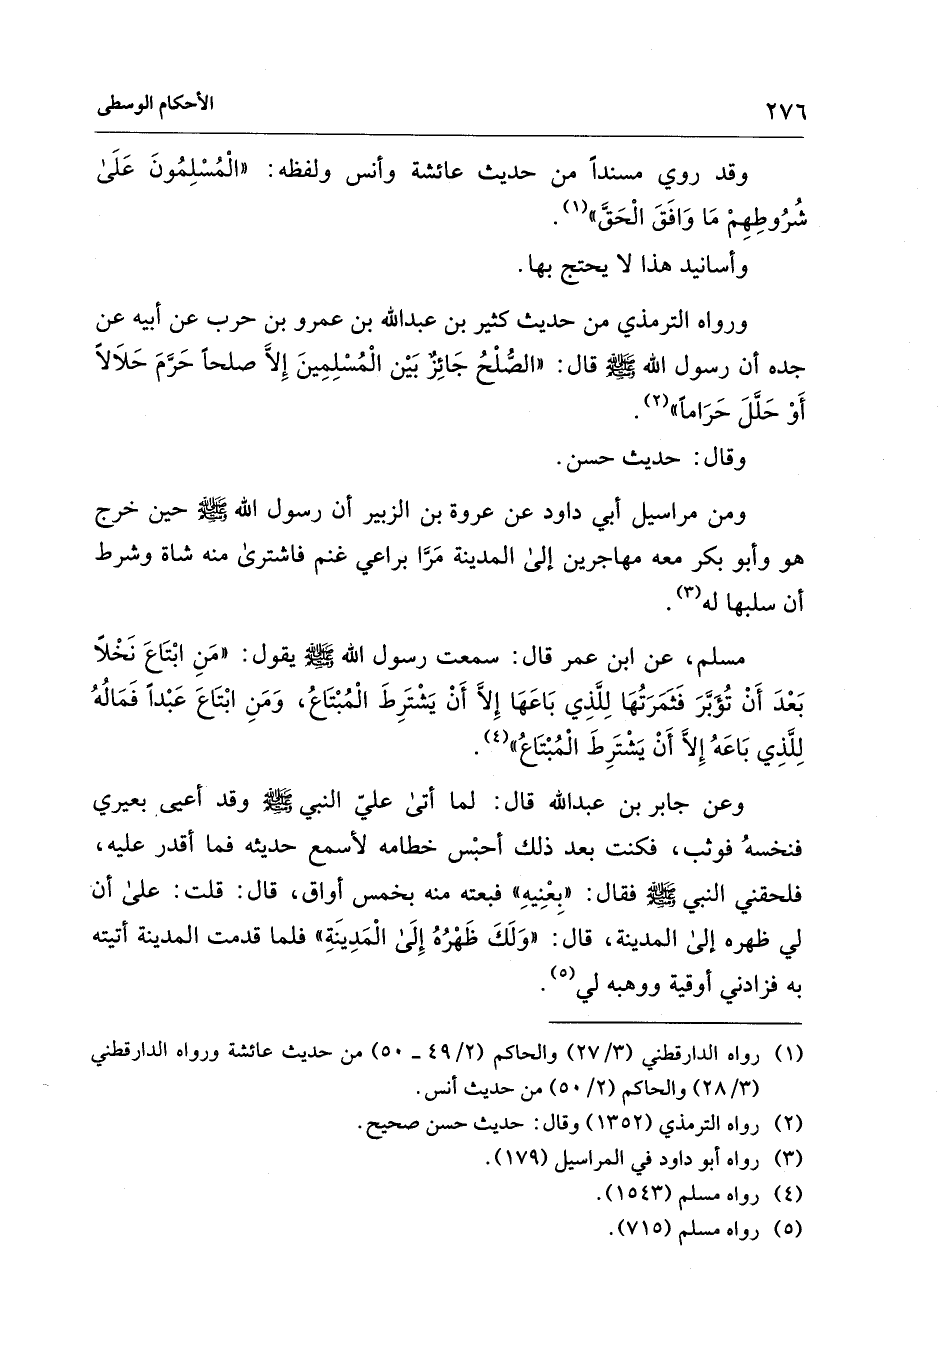 ٢٧٦ الأحكام الوسطى
وقد روي مسنداً من حديث عائشة وأنس ولفظه: «الْمُسْلِمُونَ عَلَىٰ
شُرُوطِهِمْ مَا وَافَقَ الْحَقَّ»(١).
وأسانيد هذا لا يحتج بها.
ورواه الترمذي من حديث كثير بن عبدالله بن عمرو بن حرب عن أبيه عن
جده أن رسول الله ﷺ قال: «الصُّلْحُ جَائِزٌ بَيْن الْمُسْلِمِينَ إِلاَّ صلحاً حَرَّمَ حَلَالاً
أَوْ حَلَّلَ حَرَاماً»(٢).
وقال: حديث حسن.
ومن مراسيل أبي داود عن عروة بن الزبير أن رسول الله ﷺ حين خرج
هو وأبو بكر معه مهاجرين إلىٰ المدينة مَرَّا براعي غنم فاشترىٰ منه شاة وشرط
أن سلبها له(٣).
مسلم، عن ابن عمر قال: سمعت رسول الله ﷺ يقول: «مَنِ ابْتَاعَ نَخْلاً
بَعْدَ أَنْ تُؤَبَّرَ فَثَمَرَتُهَا لِلَّذِي بَاعَهَا إِلاَّ أَنْ يَشْتَرِطَ الْمُبْتَاعُ، وَمَنِ ابْتَاعَ عَبْداً فَمَالُهُ
لِلَّذِي بَاعَهُ إِلاَّ أَنْ يَشْتَرِطَ الْمُبْتَاعُ»(٤).
وعن جابر بن عبدالله قال: لما أتىٰ عليّ النبي ﷺ وقد أعيى بعيري
فنخسهُ فوثب، فكنت بعد ذلك أحبْس خطامه لأسمع حديثه فما أقدر عليه،
فلحقني النبي ﷺ فقال: «بِعْنِيهِ» فبعته منه بخمس أواق، قال: قلت: علىٰ أن
لي ظهره إلىٰ المدينة، قال: «وَلَكَ ظَهْرُهُ إِلَىٰ الْمَدِينَةِ» فلما قدمت المدينة أتيته
به فزادني أوقية ووهبه لي(٥).
(١) رواه الدارقطني (٣/ ٢٧) والحاكم (٢/ ٤٩ ـ ٥٠) من حديث عائشة ورواه الدارقطني
(٣/ ٢٨) والحاكم (٢/ ٥٠) من حديث أنس.
(٢) رواه الترمذي (١٣٥٢) وقال: حديث حسن صحيح.
(٣) رواه أبو داود في المراسيل (١٧٩).
(٤) رواه مسلم (١٥٤٣).
(٥) رواه مسلم (٧١٥).